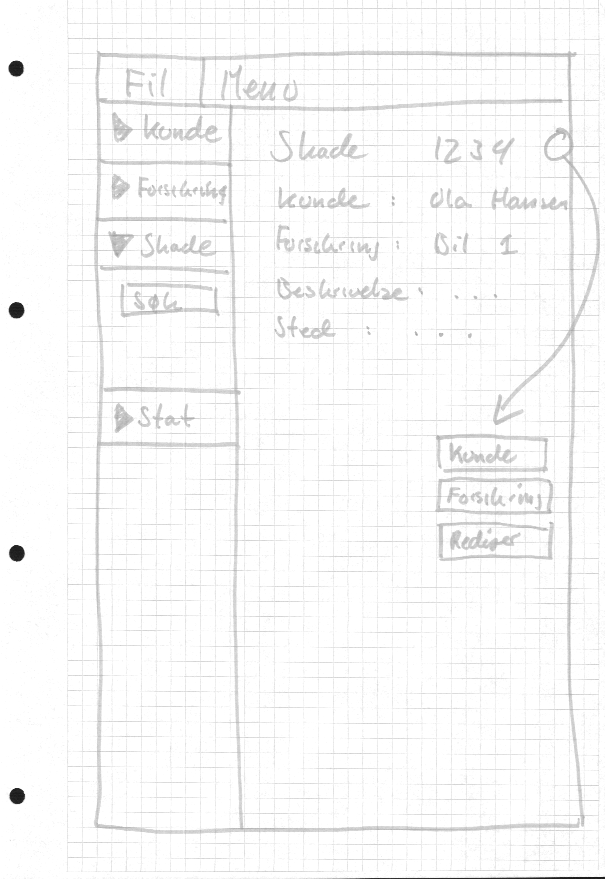 Fil Menu
Kunde
Forsikring
Skade
Søk
Stat
Skade 1234
Kunde : Ola Hansen
Forsikring : Bil 1
Beskrivelse : . . .
Sted : . . .
Kunde
Forsikring
Rediger